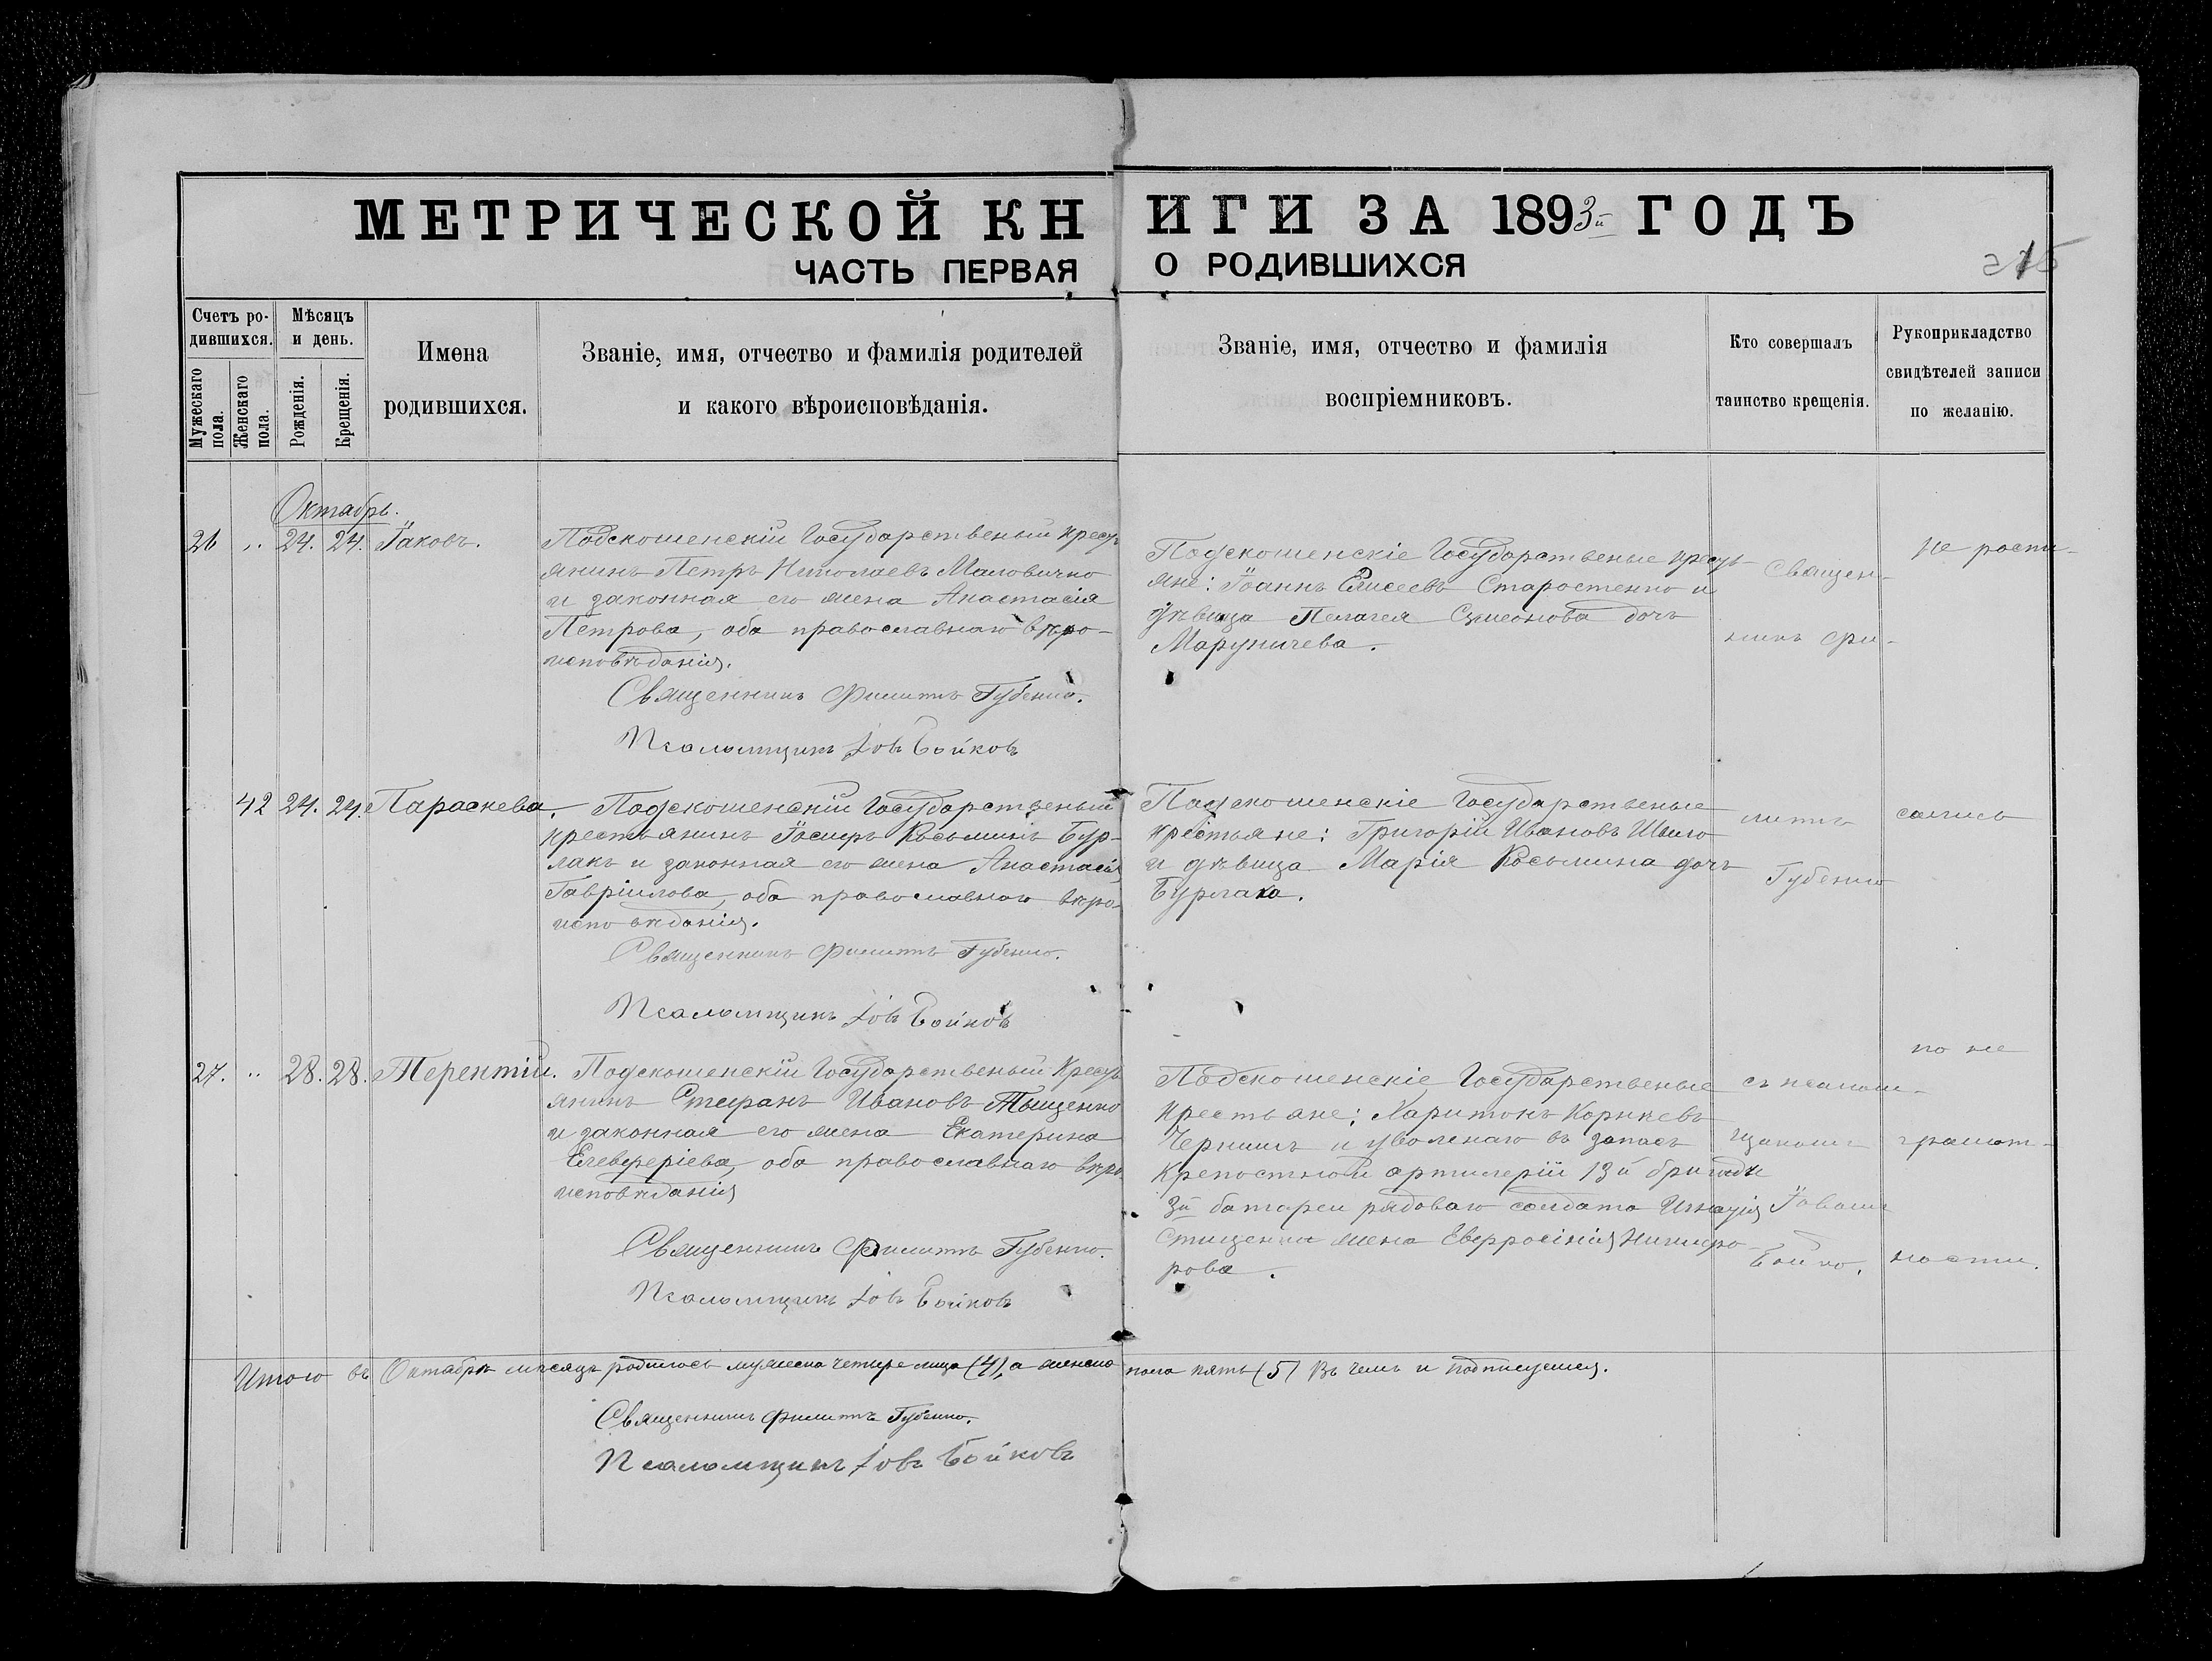 МЕТРИЧЕСКОЙ КНИГИ ЗА 1893й ГОДЪ
ЧАСТЬ ПЕРВАЯ О РОДИВШИХСЯ
Счетъ ро-
дившихся.
Мѣсяцъ
и день.
Мужескаго
пола.
Женскаго
пола.
Рожденія.
Крещенія.
Имена
родившихся.
Званіе, имя, отчество и фамилія родителей
и какого вѣроисповѣданія.
Званіе, имя, отчество и фамилія
воспріемниковъ.
Кто совершалъ
таинство крещенія.
Рукоприкладство
свидѣтелей записи
по желанію.
Октабрь.
26 „ 24. 24. Іаковъ.
Подскошенскій Государственый кресть
янинъ Петръ Николаевъ Маловичко
и законная его жена Анастасія
Петрова, оба православнаго вѣро-
исповѣданія.
Священникъ Филиппъ Губенко.
Псаломщикъ Іовъ Бойковъ
Подскошенскіе Государственые кресть-
яне: Іоаннъ Елисеевъ Старостенко и
дѣвица Пелагея Симеонова дочь
Маруничева.
42 24. 24. Параскева.
Подскошенскій Государственый
крестьянинъ Іосифъ Косьминъ Бур-
лакъ и законная его жена Анастасія
Гавріилова, оба православнаго вѣро-
исповѣданія.
Священникъ Филиппъ Губенко.
Псаломщикъ Іовъ Бойковъ
Подскошенскіе Государственые
крестьяне: Григорій Ивановъ
и дѣвица Марія Косьмина дочь
Бурлака.
27. „ 28. 28. Терентій.
Подскошенскій Государственый Кресть
янинъ Стефанъ Ивановъ Тыщенко
и законная его жена Екатерина
Елевферіева, оба православнаго вѣро
исповѣданія
Священникъ Филиппъ Губенко.
Псаломщикъ Іовъ Бойковъ
Подскошенскіе Государственые
крестьяне: Харитонъ Корнѣевъ
и уволенаго въ запасъ
крепостной артилерій 13й бригады
3й батареи рядоваго солдата Игнатія
жена
рова.
Священ-
никъ Фи-
липпъ
Губенко
съ псалом-
щикомъ
Іовомъ
Бойко.
Не роспи-
сались
по не
грамот-
ности.
Итого въ Октабрѣ мѣсяцѣ родилось мужеска четыре лица (4), а женска пола пять (5) Въ чемъ и подписуемся.
Священникъ Филиппъ Губенко.
Псаломщикъ Іовъ Бойковъ